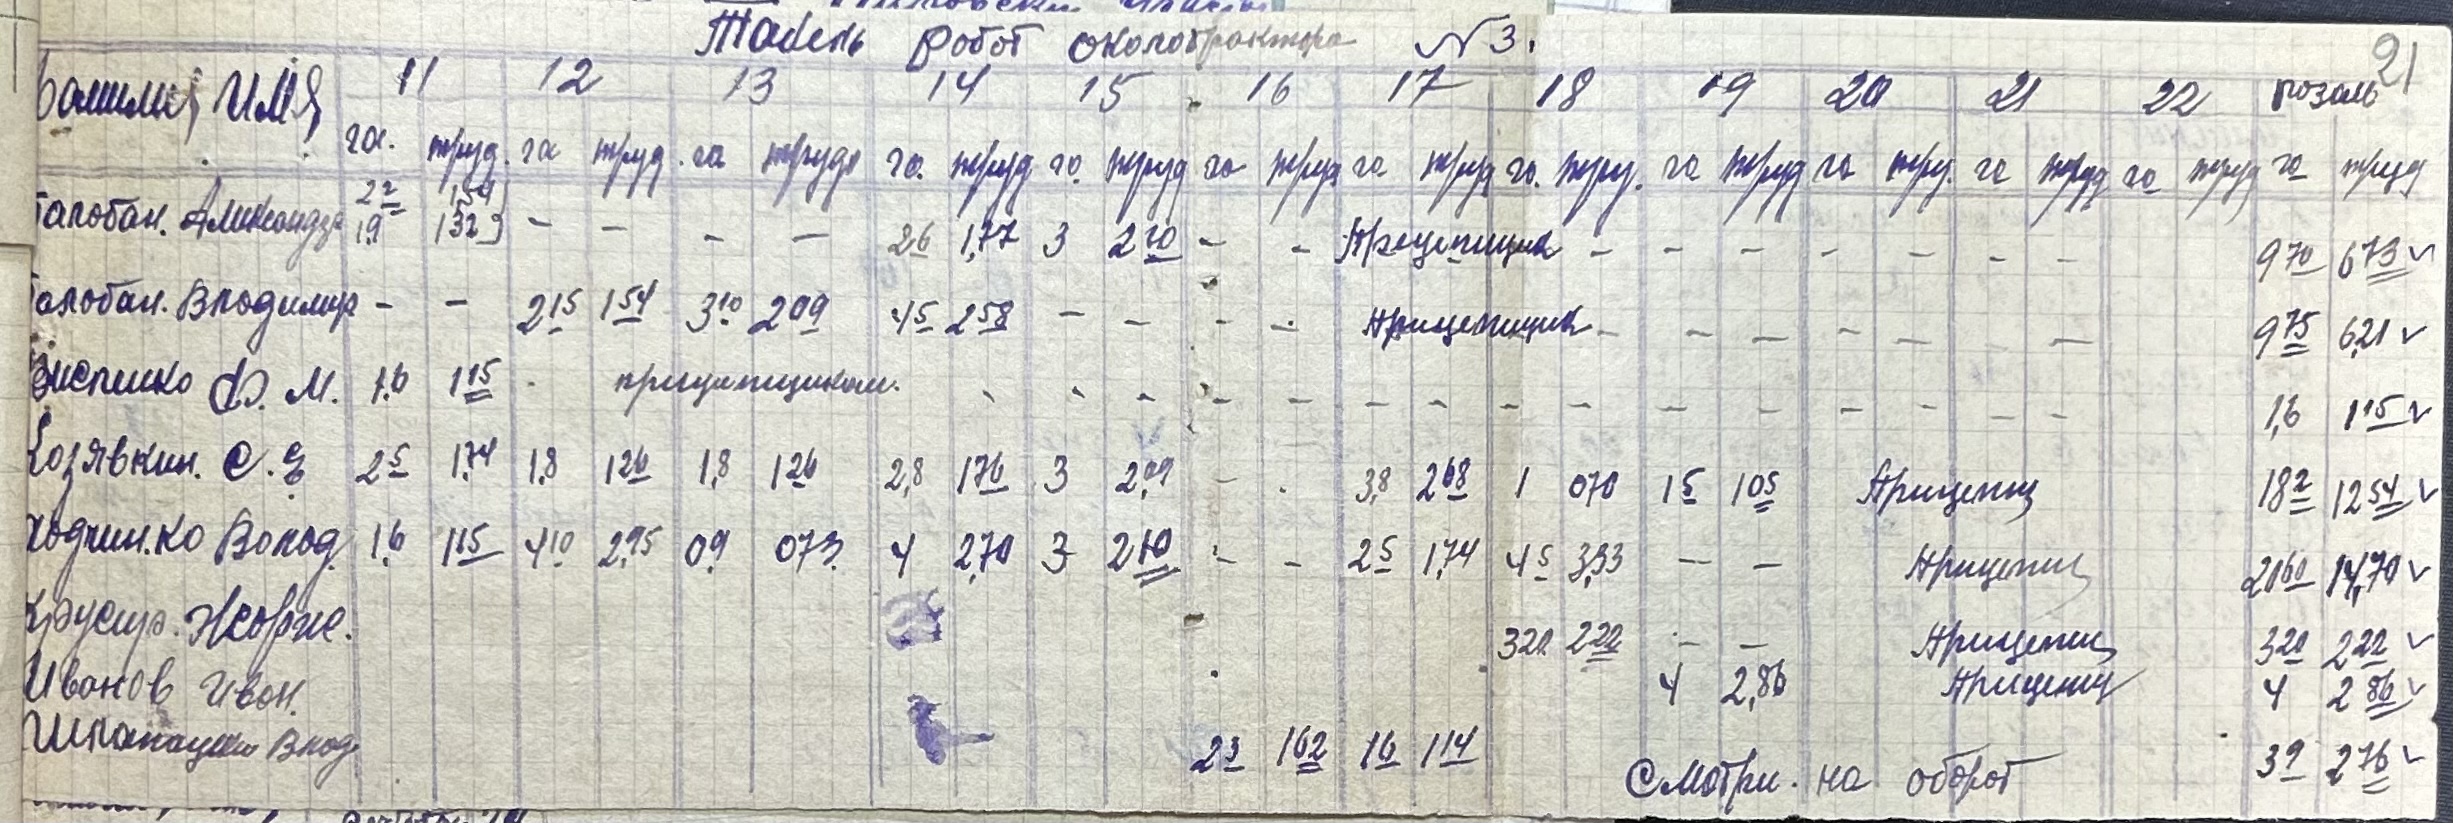 Табель робот околотрактора №3.
21
Фамилия, ИМЯ 11 12 13 14 15 16 17 18 19 20 21 22
га. труд. га труд. га труд. га. труд го. труд го труд го труд го. труд. га труд го труд. га труд га труд га труд
2² 154
Галобан. Александр 1,9 132 – – – – 26 1,77 3 2 10 – – Прицепщик – – – – – – – 9 70 6 73
Галобан. Владимир – – 2 15 1 54 3 10 2 09 4 5 2 58 – – – – Прицепщик – – – – – – – 9 75 6,21
Ф. М. 1,6 1 15 прицепщиком. – – – – – – – – – – – – – – – 1,6 1 15
Козявкин. С. Е 2 5 1,74 1,8 1 26 1,8 1 26 2,8 1 76 3 2,09 – 3,8 2 68 1 0 70 1 5 1 05 Прицепщ 18 2 12 54
Ходчин.ко Волод. 1,6 1 15 4 10 2,95 0,9 0 73 4 2,70 3 2 10 – – 2 5 1,74 4 5 3,33 – – Прицепщ 20 60 14,70
Жорже. 3 20 2 22 – – Прицепщ 3 20 2 22
Иванов Иван. 4 2,86 Прицепщ 4 2 86
Влад. 2 3 1 62 1 6 1 14 3 9 2 76
Смотри. на оборот